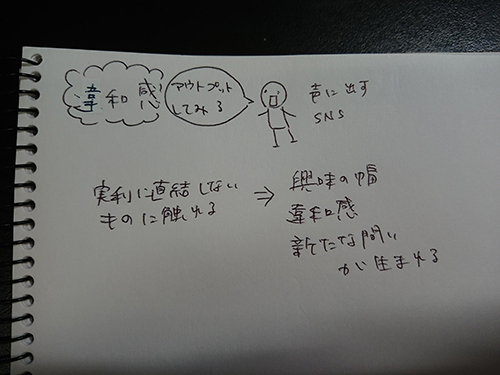 違和感
アウトプット
してみる
声に出す
SNS
実利に直結しない
ものに触れる
⇒
興味の幅
違和感
新たな問い
が生まれる